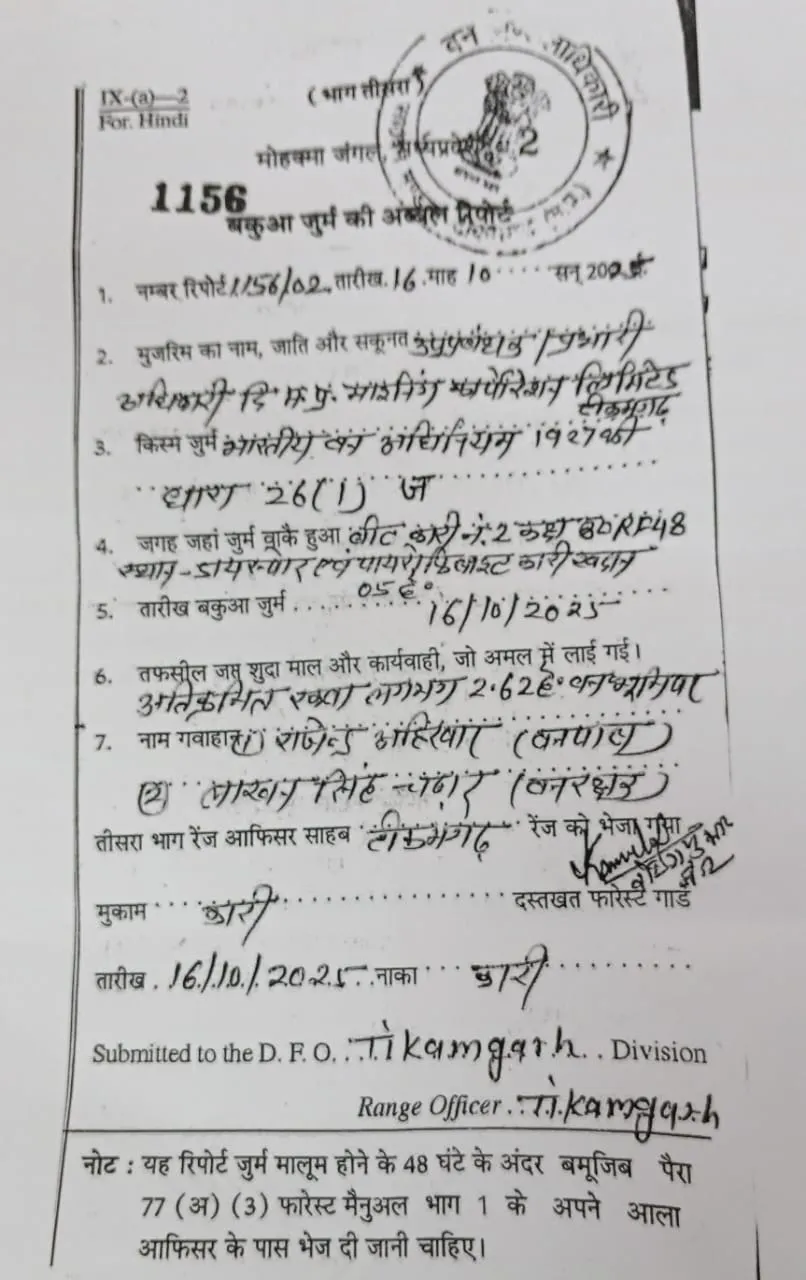 IX-(a)—2
For. Hindi
(भाग तीसरा)
वन
मोहक्मा जंगल, मध्यप्रदेश
2
1156
बकुआ जुर्म की अव्वल रिपोर्ट
1. नम्बर रिपोर्ट 1156/02 तारीख 16 माह 10 सन् 202
2. मुजरिम का नाम, जाति और सकूनत प्रभारी
अधिकारी दि म.प्र. माइनिंग कार्पोरेशन लिमिटेड
टीकमगढ़
3. किस्म जुर्म भारतीय वन अधिनियम 1927 की
धारा 26(1) ज
4. जगह जहां जुर्म वाकै हुआ बीट कारी नं. 2 कक्ष RF48
स्थान - डायस्पोर एवं पायरोफिलाइट कारी खदान
5. तारीख बकुआ जुर्म 16/10/2025
6. तफसील जप्त शुदा माल और कार्यवाही, जो अमल में लाई गई।
अतिक्रामित रकवा लगभग 2.62 हे. वनभूमि पर
7. नाम गवाहान (1) राजेन्द्र अहिरवार (वनपाल)
(2) लाखन सिंह चढ़ार (वनरक्षक)
तीसरा भाग रेंज आफिसर साहब टीकमगढ़ रेंज को भेजा गया
मुकाम कारी दस्तखत फारेस्ट गार्ड
तारीख 16/10/2025 नाका कारी
Submitted to the D. F. O. Tikamgarh Division
Range Officer Tikamgarh
नोट : यह रिपोर्ट जुर्म मालूम होने के 48 घंटे के अंदर बमूजिब पैरा
77 (अ) (3) फारेस्ट मैनुअल भाग 1 के अपने आला
आफिसर के पास भेज दी जानी चाहिए।